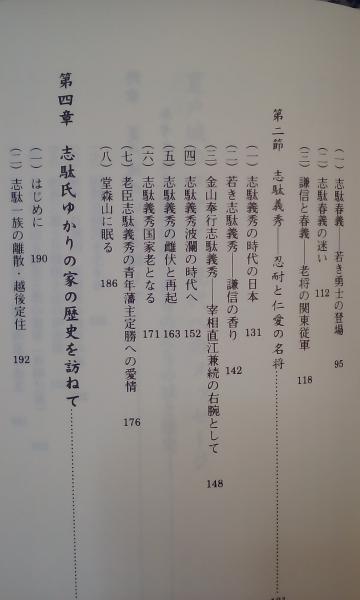 (一) 志駄春義――若き勇士の登場 95
(二) 志駄春義の迷い 112
(三) 謙信と春義――老将の関東従軍 118
第二節 志駄義秀――忍耐と仁愛の名将
(一) 志駄義秀の時代の日本 131
(二) 若き志駄義秀――謙信の香り 142
(三) 金山奉行志駄義秀――宰相直江兼続の右腕として 148
(四) 志駄義秀波瀾の時代へ 152
(五) 志駄義秀の雌伏と再起 163
(六) 志駄義秀国家老となる 171
(七) 老臣志駄義秀の青年藩主定勝への愛情 176
(八) 堂森山に眠る 186
第四章 志駄氏ゆかりの家の歴史を訪ねて
(一) はじめに 190
(二) 志駄一族の離散・越後定住 192